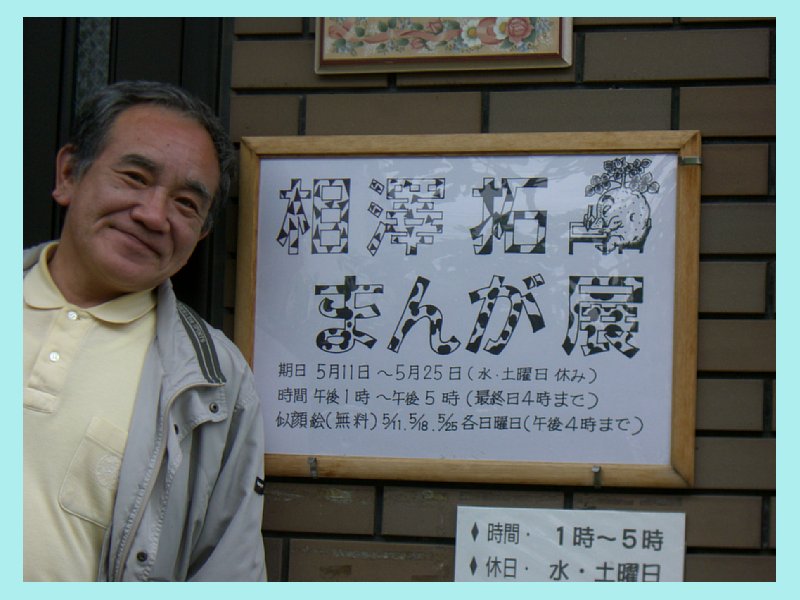 相澤拓
まんが展
期日 5月11日～5月25日(水・土曜日休み)
時間 午後1時～午後5時(最終日4時まで)
似顔絵(無料)5/11.5/18.5/25各日曜日(午後4時まで)
♦時間・ 1時～5時
♦休日・ 水・土曜日